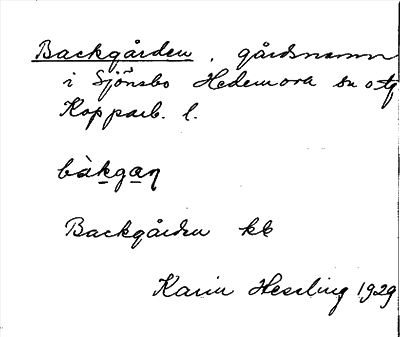 Backgården, gårdsnamn
i Sjönsbo Hedemora sn o tg
Kopparb. l.
bàkgaṇ
Backgården kb
Karin Hessling 1929